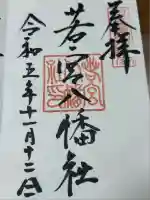 奉拝
若宮八幡社
令和五年十一月十二日